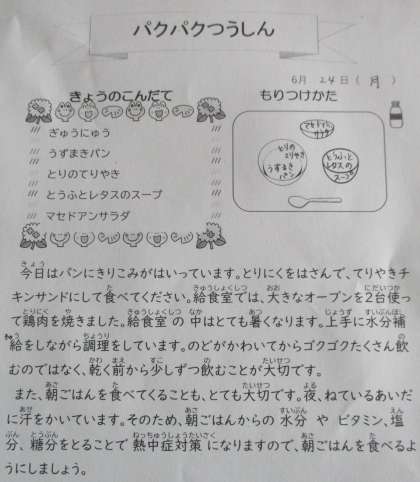 パクパクつうしん
6月 24日(月)
きょうのこんだて
ぎゅうにゅう
うずまきパン
とりのてりやき
とうふとレタスのスープ
マセドアンサラダ
もりつけかた
マセドアン
サラダ
とりの
てりやき
うずまき
パン
とうふと
レタスの
スープ
今日はパンにきりこみがはいっています。とりにくをはさんで、てりやきチ
キンサンドにして食べてください。給食室では、大きなオーブンを2台使っ
て鶏肉を焼きました。給食室の中はとても暑くなります。上手に水分補
給をしながら調理をしています。のどがかわいてからゴクゴクたくさん飲
むのではなく、乾く前から少しずつ飲むことが大切です。
また、朝ごはんを食べてくることも、とても大切です。夜、ねているあいだ
に汗をかいています。そのため、朝ごはんからの 水分 や ビタミン、塩
分、糖分をとることで 熱中症対策 になりますので、朝ごはんを食べるよ
うにしましょう。